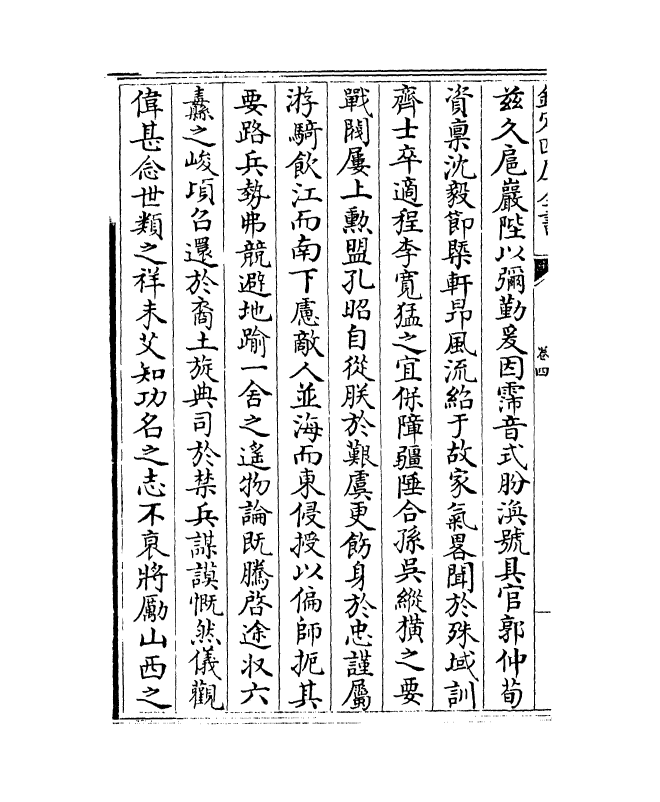 欽定四庫全書
卷四
茲久扈巖陛以彌勤爰因霈音式肦渙號具官郭仲荀
資禀沈毅節槩軒昻風流紹于故家氣畧聞於殊域訓
齊士卒適程李寛猛之宜保障疆陲合孫吳縱横之要
戰閥屢上勲盟孔昭自從朕於艱虞更飭身於忠謹屬
游騎飲江而南下慮敵人並海而東侵授以偏師扼其
要路兵勢弗競避地踰一舍之遙物論既騰啓途㳄六
纛之峻頃召還於裔土旋典司於禁兵謀謨慨然儀觀
偉甚念世類之祥未艾知功名之志不衰將勵山西之